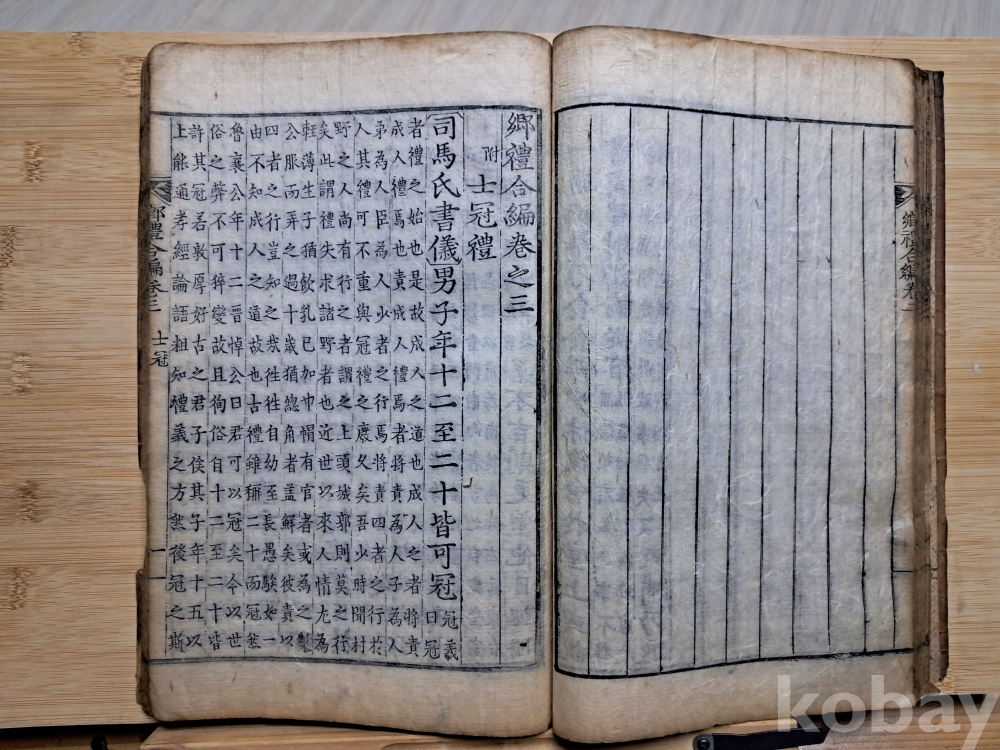 鄉禮合編卷之三
附士冠禮
司馬氏書儀男子年十二至二十皆可冠冠義曰冠
者禮之始也是故成人之道也成人之者將責
成人禮焉也責成人禮焉者將責為人子為人
弟為人臣為人少者之行焉將責四者之行於
人其禮可不重與冠禮之廢久矣吾少時聞村
野之人尚有行之者謂之上頭城郭則莫之行
矣此謂禮失求諸野者也近世以來人情尤為
輕薄生子猶飲乳已加巾帽有官者或為之製
公服而弄之過十歲猶總角者盖鮮矣彼責以
四者之行豈知之㢤徃徃自幼至長愚騃如一
由不知成人之道故也古禮雖稱二十而冠然
魯襄公年十二晋悼公曰君可以冠矣今以世
俗之弊不可猝變故且徇俗自十二至二十皆
許其冠若敦厚好古之君子俟其子年十五以
上能通孝經論語粗知禮義之方然後冠之斯
鄉禮合編卷三 士冠 一
鄉禮合編卷
kobay